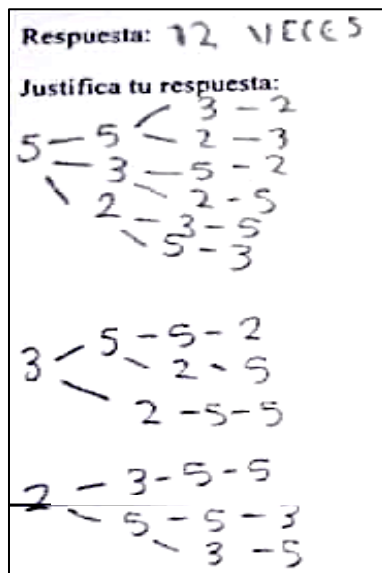 Respuesta: 12 VECES
Justifica tu respuesta:
3 - 2
5 - 5 2 - 3
3 - 5 - 2
2 - 5
2 - 3 - 5
5 - 3
5 - 5 - 2
3 2 - 5
2 - 5 - 5
2 - 3 - 5 - 5
5 - 5 - 3
3 - 5